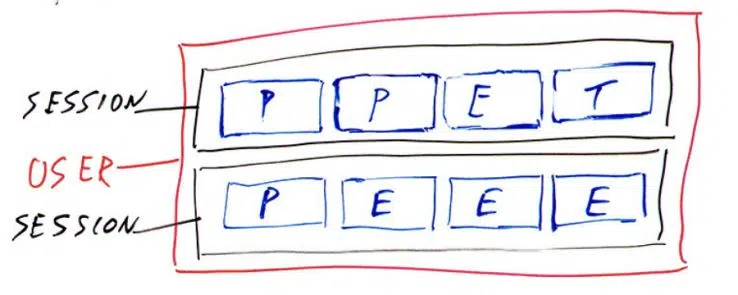 SESSION P P E T
USER
SESSION P E E E